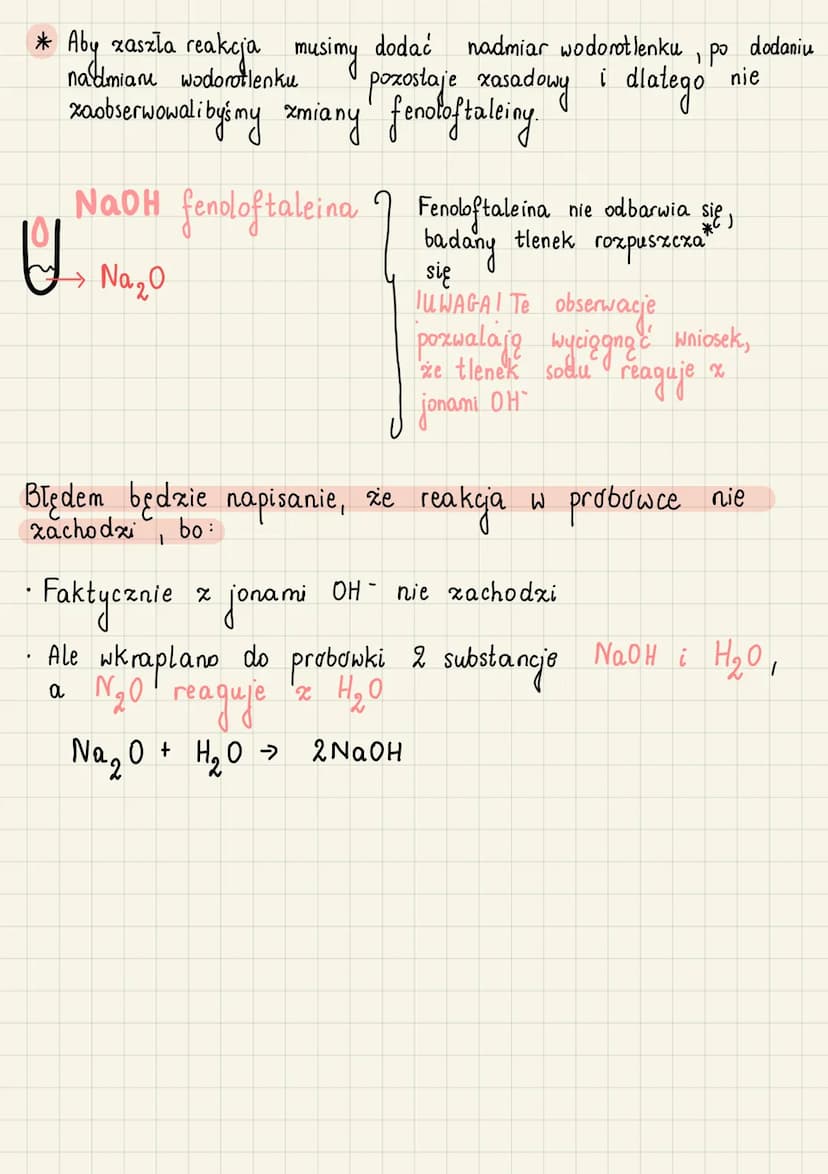 * Aby zaszła reakcja musimy dodać nadmiar wodorotlenku, po dodaniu
nadmiaru wodorotlenku pozostaje zasadowy i dlatego nie
zaobserwowalibyśmy zmiany fenoloftaleiny.
NaOH fenoloftaleina
→ Na₂O
Fenoloftaleina nie odbarwia się,
badany tlenek rozpuszcza*
się
!UWAGA! Te obserwacje
pozwalają wyciągnąć wniosek,
że tlenek sodu reaguje z
jonami OH⁻
Błędem będzie napisanie, że reakcja w probówce nie
zachodzi, bo:
· Faktycznie z jonami OH⁻ nie zachodzi
· Ale wkraplano do probówki 2 substancje NaOH i H₂O,
a N₂O reaguje z H₂O
Na₂O + H₂O → 2NaOH